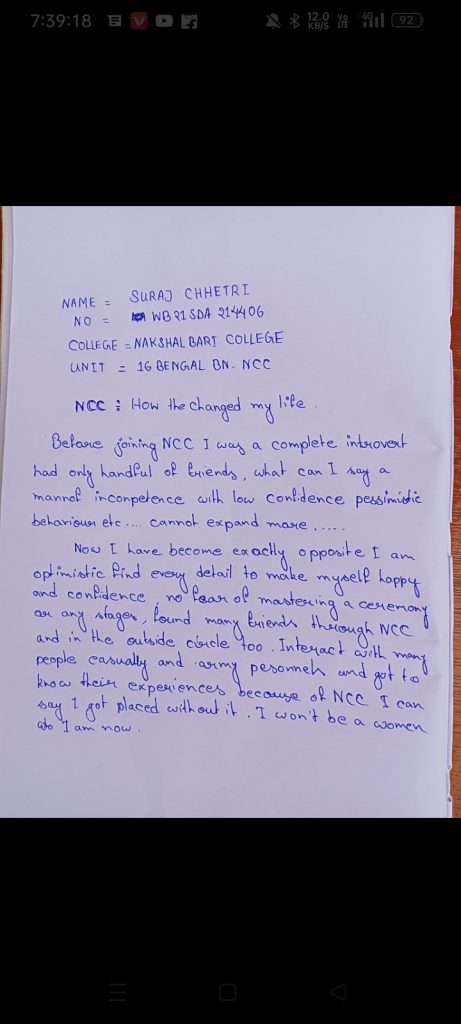 7:39:18
12.0 KB/S
Vo LTE
4G
92
NAME = SURAJ CHHETRI
NO = WB21SDA 214406
COLLEGE = NAKSHALBARI COLLEGE
UNIT = 16 BENGAL BN. NCC
NCC : How the changed my life.
Before joining NCC I was a complete introvert
had only handful of friends, what can I say a
mannof inconpetence with low confidence pessimistic
behaviour etc.... cannot expand more .....
Now I have become exactly opposite I am
optimistic find every detail to make myself happy
and confidence, no fear of mastering a ceremony
or any stages, found many friends through NCC
and in the outside circle too. Interact with many
people casually and army pesonneh and got to
know their experiences because of NCC I can
say I got placed without it. I won't be a women
who I am now.